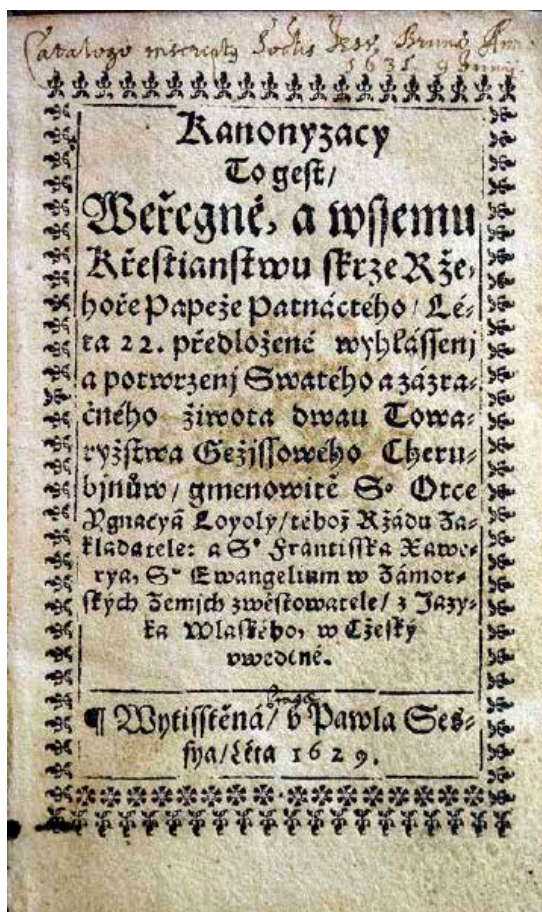 Catalogo inscriptg Soctis Jesv Brunae Anno
1631 9 Junij.
Kanonyzacy
To gest/
Weřegné, a wssemu
Křestianstwu skrze Rže-
hoře Papeže Patnáctého/ Lé-
ta 22. předložené wyhlássenj
a potwrzenj Swatého a zázra-
čného žiwota dwau Towa-
ryžstwa Gežjssowého Cheru-
bjnůw/ gmenowitě S. Otce
Ygnacyã Loyoly/ téhož Ržádu Za-
kladatele: a S. Frantisska Xawe-
rya, S. Ewangelium w Zámor-
ských Zemjch zwěstowatele/ z Jazy-
ka Wlaského, w Cžeský
vwedené.
¶ Wytisstěná/ v Pawla Ses-
sya/ Léta 1629.